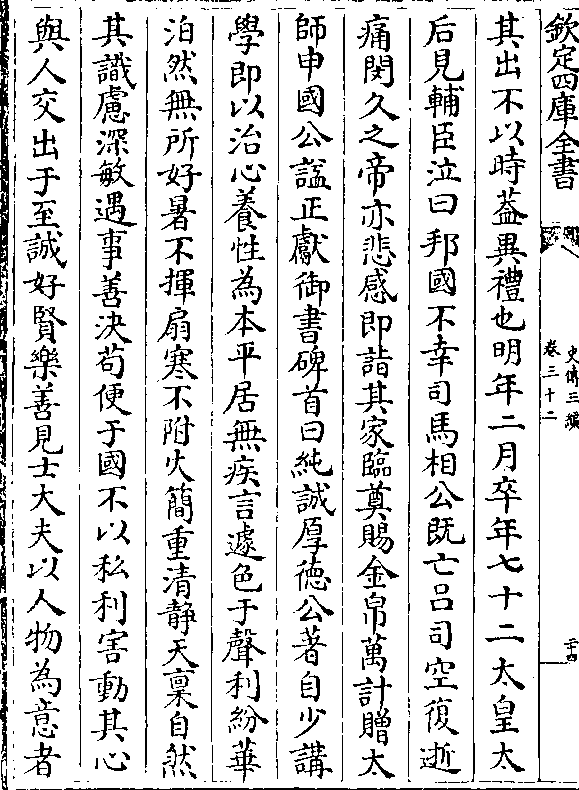 欽定四庫全書
史傳三編
卷三十二
二十四
其出不以時葢異禮也明年二月卒年七十二太皇太
后見輔臣泣曰邦國不幸司馬相公既亡吕司空復逝
痛閔久之帝亦悲感即詣其家臨奠賜金帛萬計贈太
師申國公諡正獻御書碑首曰純誠厚德公著自少講
學即以治心養性為本平居無疾言遽色于聲利紛華
泊然無所好暑不揮扇寒不附火簡重清静天稟自然
其識慮深敏遇事善決苟便于國不以私利害動其心
與人交出于至誠好賢樂善見士大夫以人物為意者